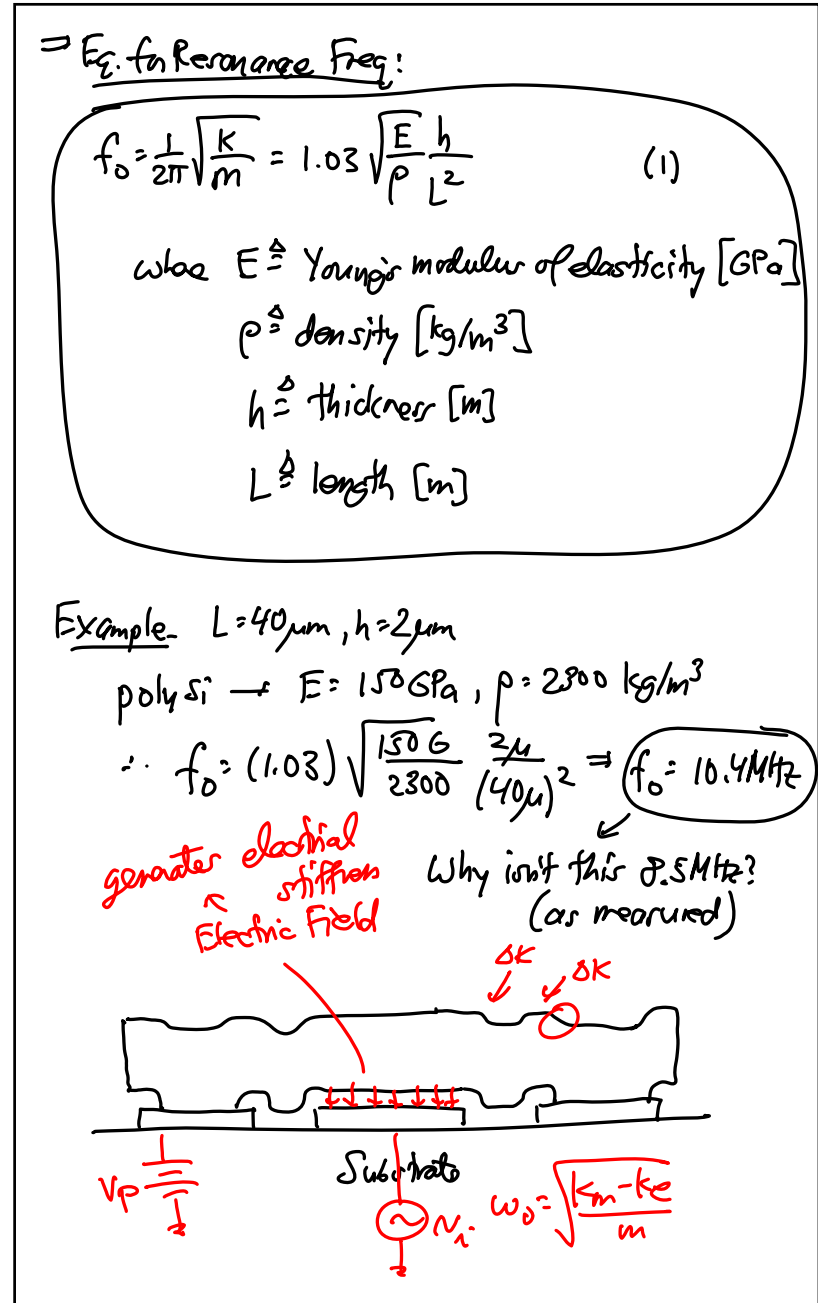 ⇒ Eq. for Resonance Freq:
f₀ = 1/2π √(k/m) = 1.03 √(E/ρ) h/L² (1)
where E ≜ Young's modulus of elasticity [GPa]
ρ ≜ density [kg/m³]
h ≜ thickness [m]
L ≜ length [m]
Example. L=40μm, h=2μm
poly si → E=150GPa, ρ=2300 kg/m³
∴ f₀=(1.03) √(150G/2300) 2μ/(40μ)² ⇒ f₀=10.4MHz
Why isn't this 8.5MHz?
(as measured)
generates electrical
stiffness
Electric Field
ΔK ΔK
Substrate
Vp
Vi
ω₀=√((km-ke)/m)